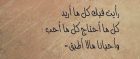 رأيت فيك كل ما أريد
كل ما أحتاج كل ما أحب
وأحيانا مالا أطيق -